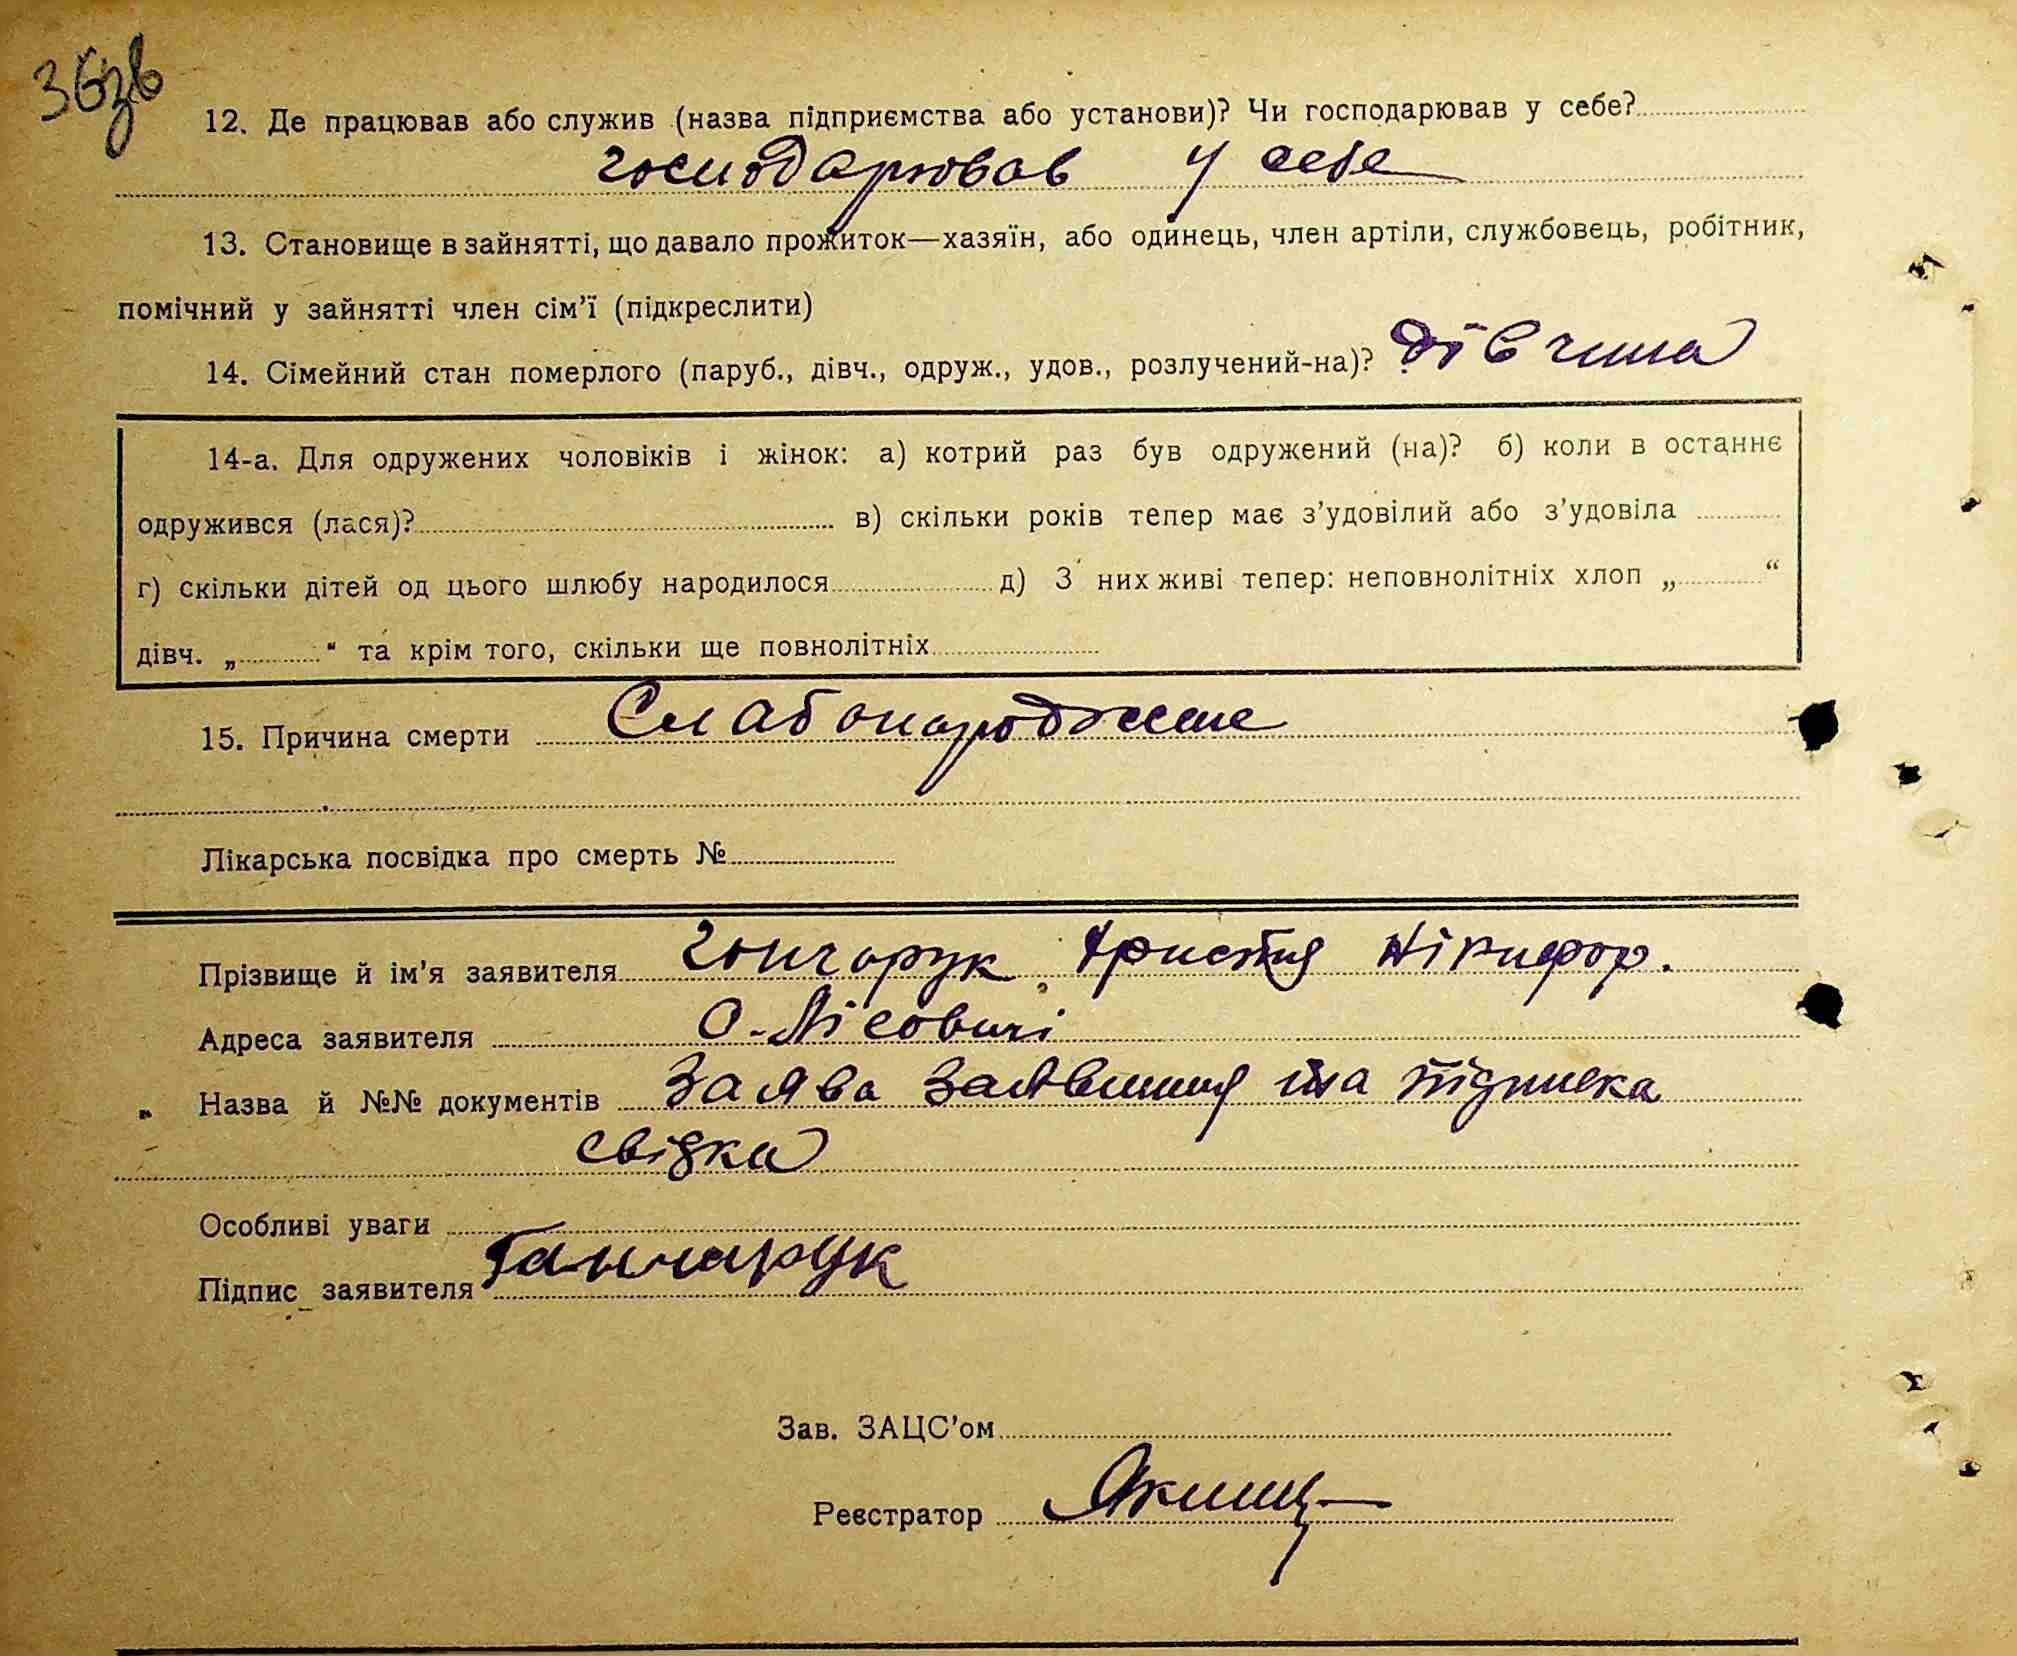 36зв
12. Де працював або служив (назва підприємства або установи)? Чи господарював у себе?
господарював у себе
13. Становище в зайнятті, що давало прожиток—хазяїн, або одинець, член артілі, службовець, робітник,
помічний у зайнятті член сім'ї (підкреслити)
14. Сімейний стан померлого (паруб., дівч., одруж., удов., розлучений-на)? дівчина
14-а. Для одружених чоловіків і жінок: а) котрий раз був одружений (на)? б) коли в останнє
одружився (лася)? в) скільки років тепер має з'удовілий або з'удовіла
г) скільки дітей од цього шлюбу народилося д) З них живі тепер: неповнолітніх хлоп „ “
дівч. „ “ та крім того, скільки ще повнолітніх
15. Причина смерти Слабонароджене
Лікарська посвідка про смерть №
Прізвище й ім'я заявителя Гончарук Христя Нікифор.
Адреса заявителя О-Лісовичі
Назва й №№ документів Заява заявниці та підписка
свідка
Особливі уваги
Підпис заявителя Ганчарук
Зав. ЗАЦС'ом
Реєстратор